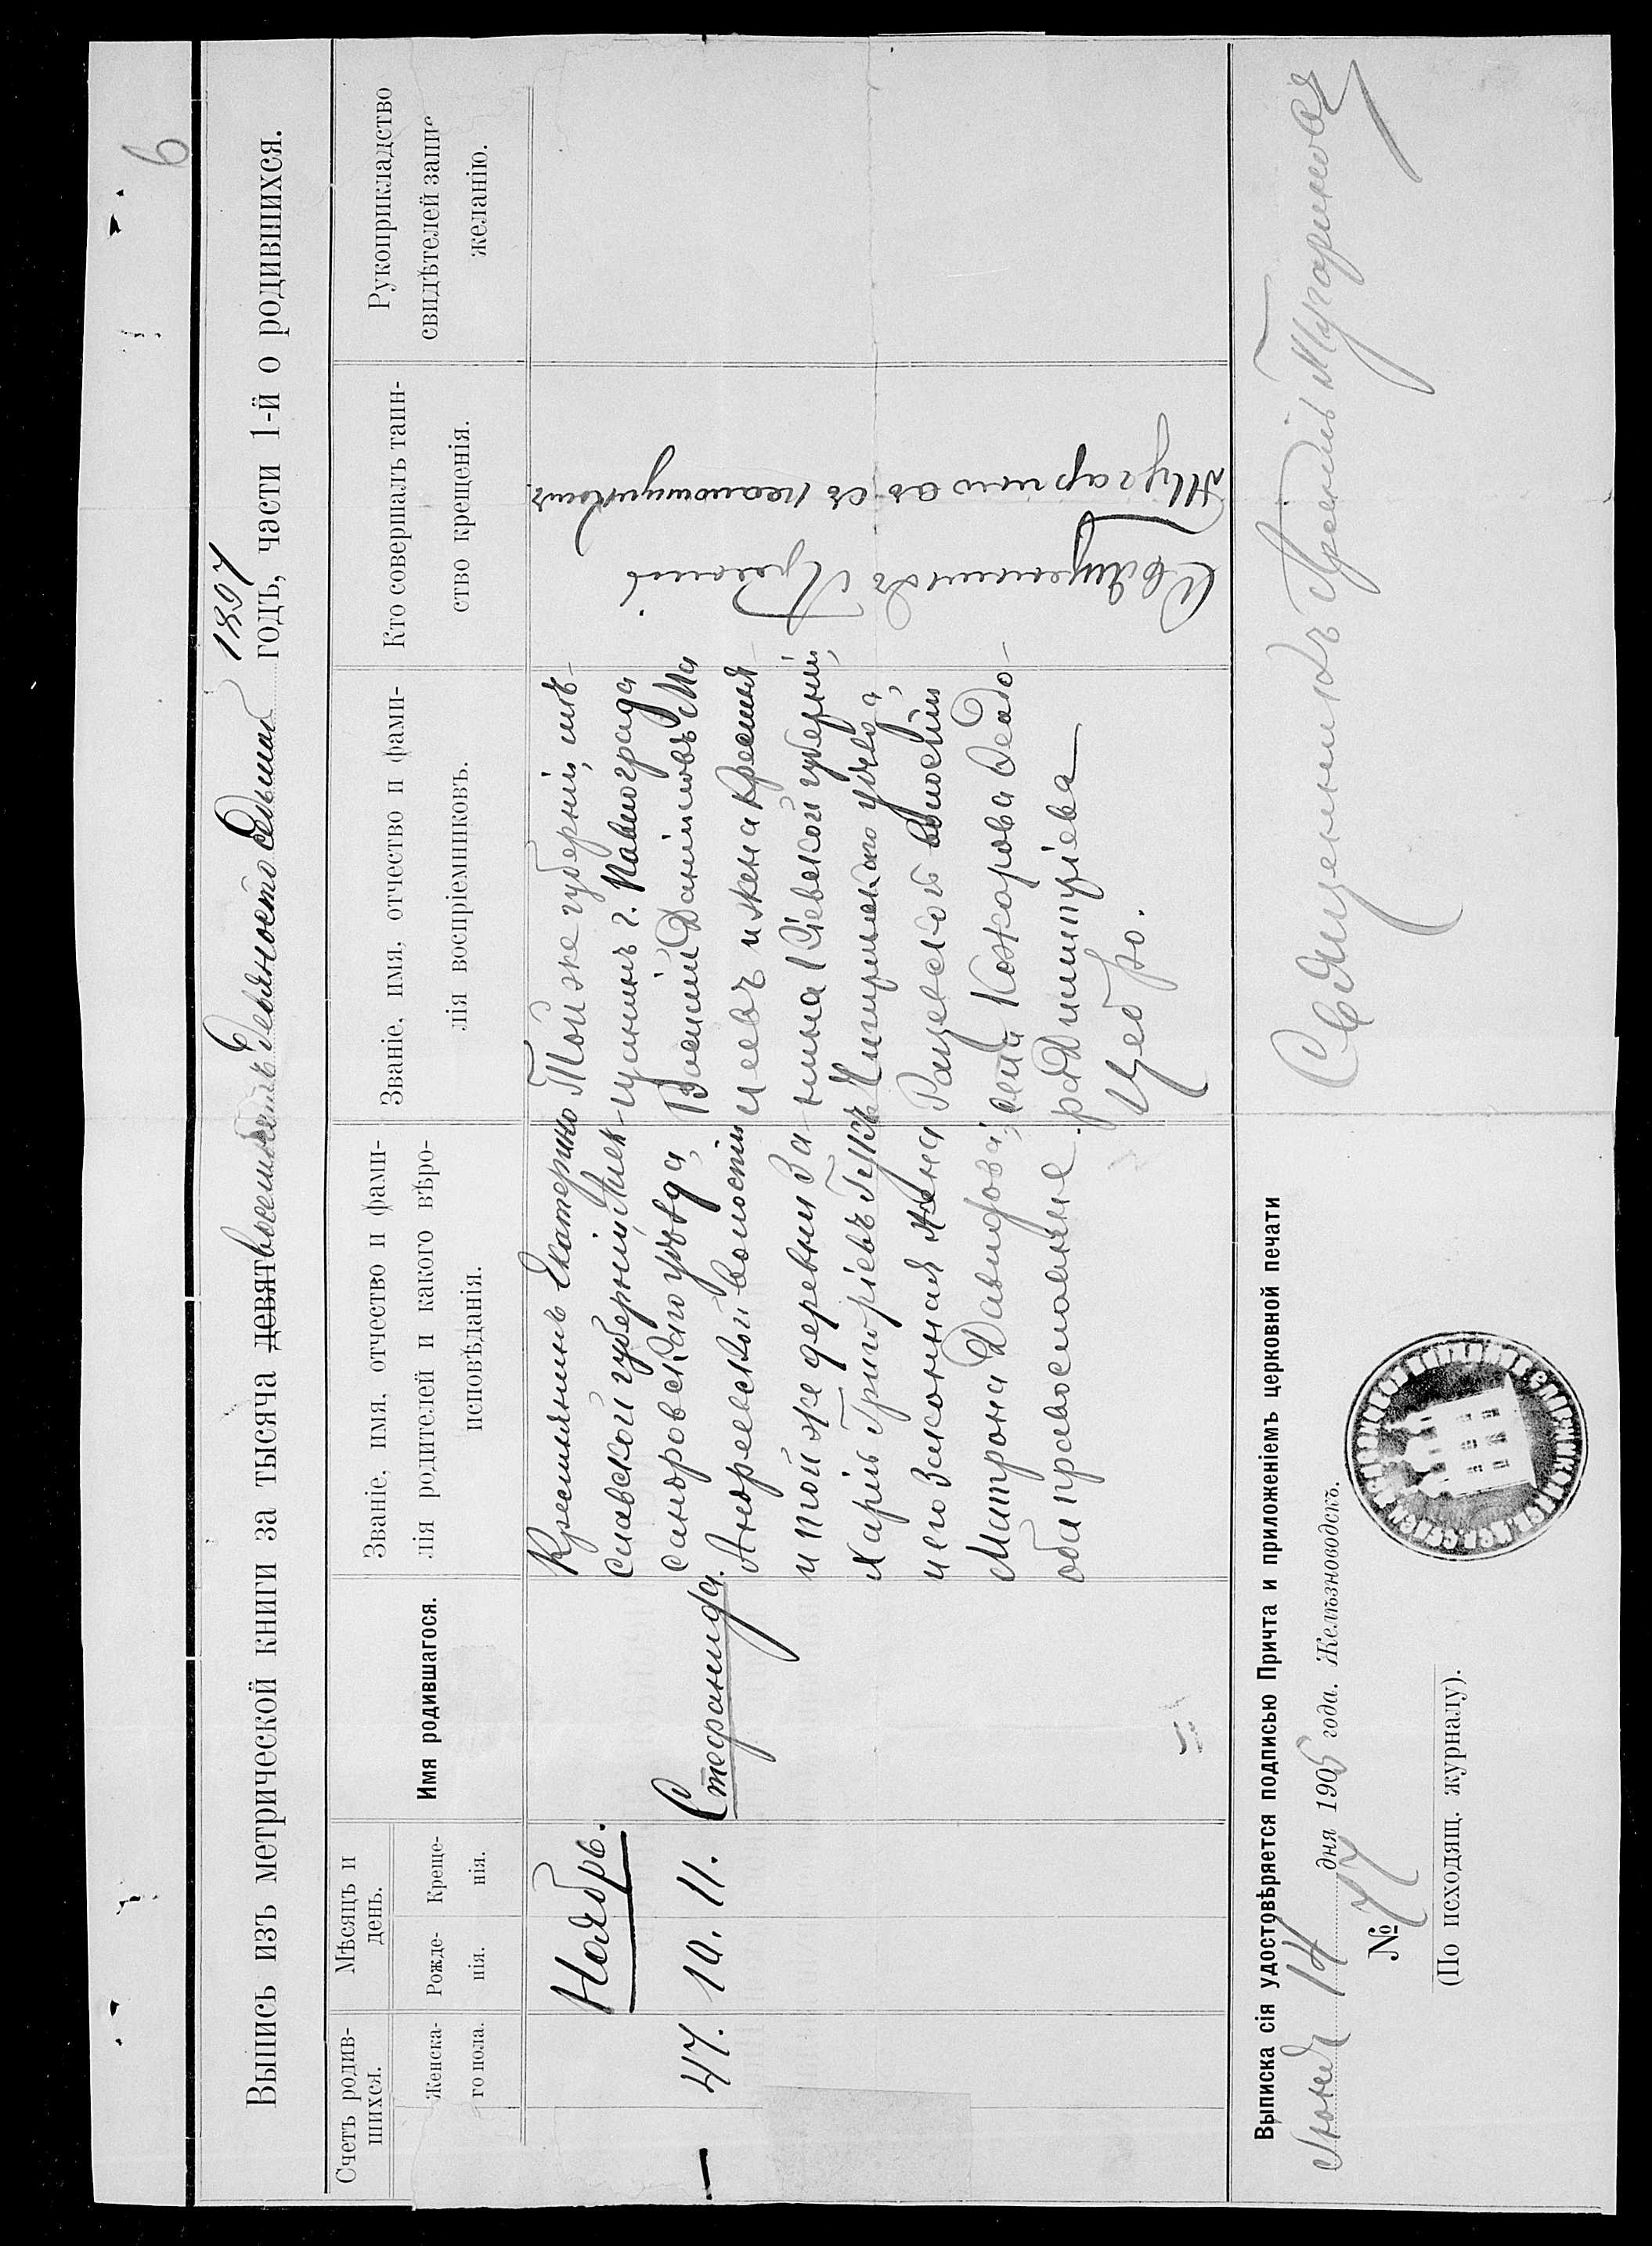 6
Выпись изъ метрической книги за тысяча девятвосемьсотъ Девяносто Седьмой 1897 годъ, части 1-й о родившихся.
Счетъ родив-
шихся.
Женска-
го пола.
Мѣсяцъ и
день.
Рожде-
нія.
Креще-
нія.
Имя родившагося.
Званіе, имя, отчество и фами-
лія родителей и какого вѣро-
исповѣданія.
Званіе, имя, отчество и фами-
лія воспріемниковъ.
Кто совершалъ таин-
ство крещенія.
Рукоприкладство
свидѣтелей запис
желанію.
Ноябрь.
47.
10.
11.
Стефанида.
Крестьянинъ Екатерино
славской губерніи, Алек-
сандровскаго уѣзда,
Андреевской волости
и той же деревни За-
харій Григорьевъ Гукъ
и его законная жена
Матрона Давидова;
оба православные.
Той же губерніи, мѣ-
щанинъ г. Павлограда
Василій Данииловъ Ма
цеевъ и жена крестья
нина Кіевской губерніи,
Чигиринскаго уѣзда,
Рацевской волости
Кожарова Ѳеодо-
ра Димитріева
Цебро.
Священникъ Арсеній
Тугариновъ съ псаломщикомъ
Выписка сія удостовѣряется подписью Причта и приложеніемъ церковной печати
Июня 14 дня 1905 года. Желѣзноводскъ.
№ 77
(По исходящ. журналу).
Священникъ Арсеній Тугариновъ